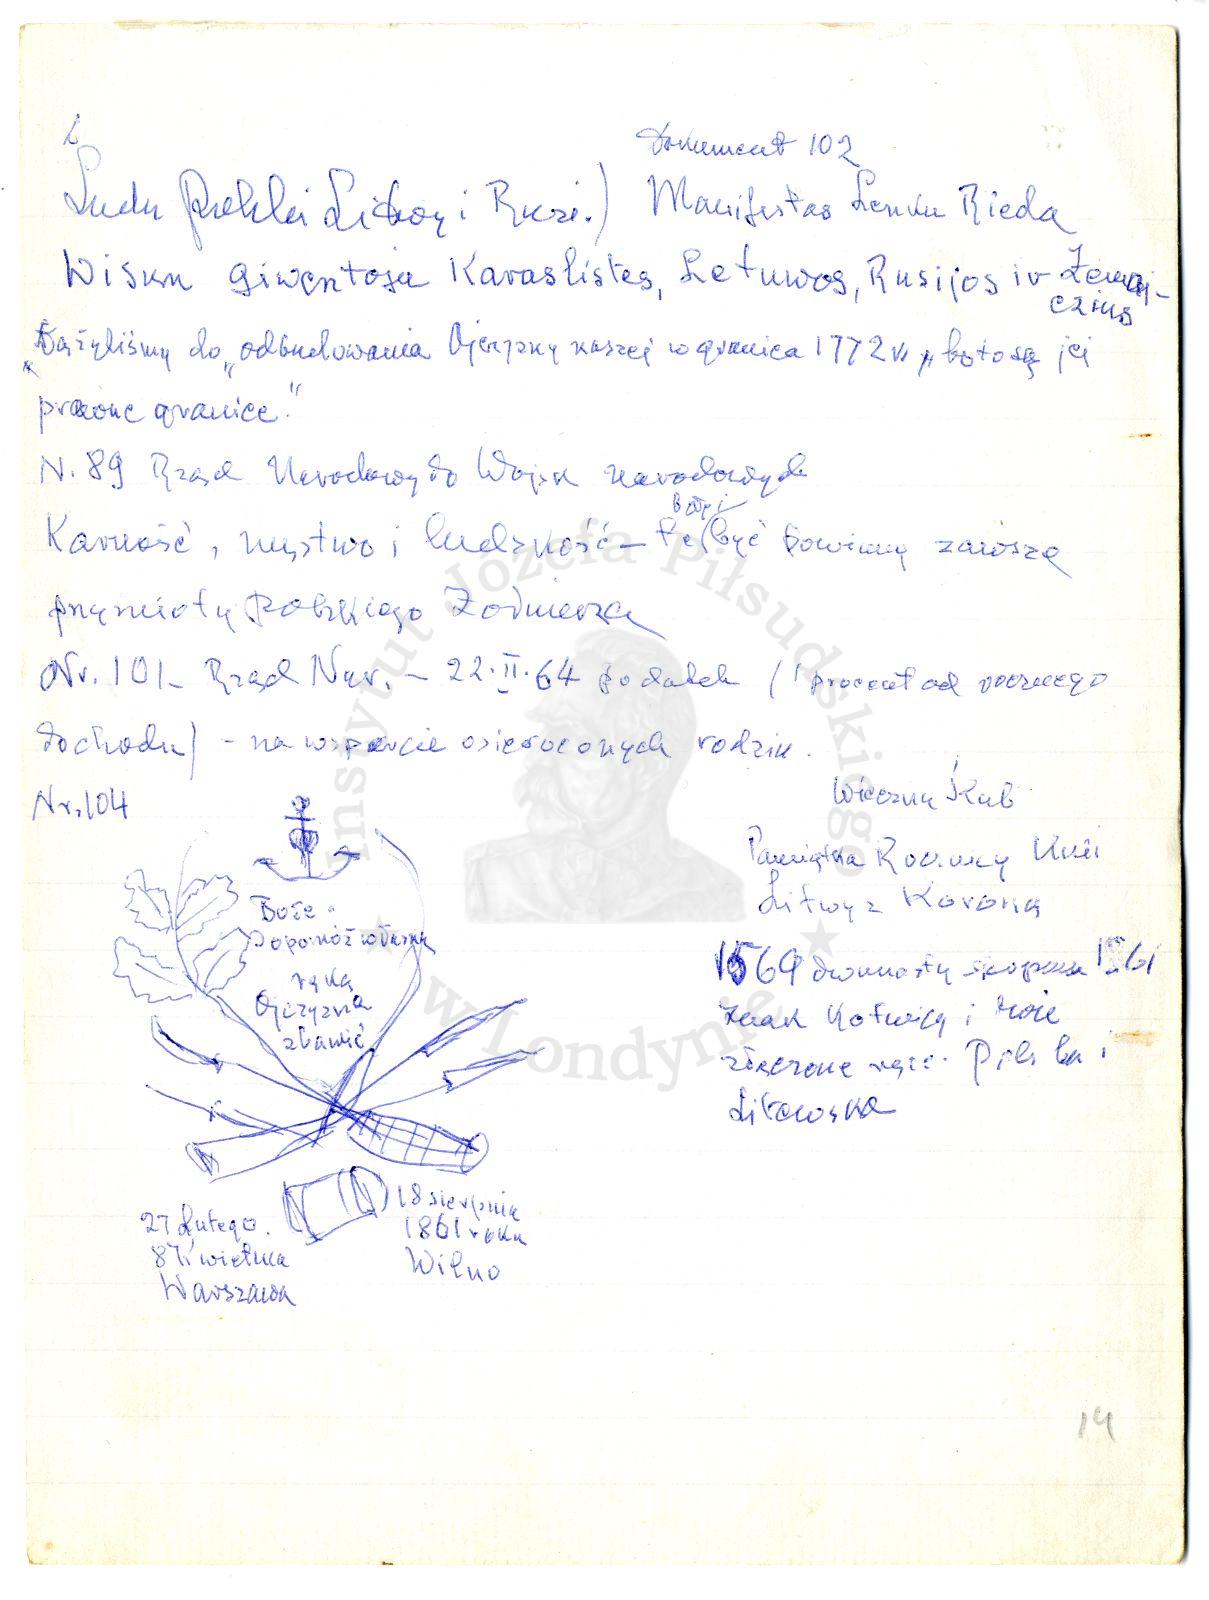 Dokument 102
Ludu Polski Litwy i Rusi.) Manifestas Lenku Rieda
Wisun giwentoja Karaslistes, Letuwos, Rusijos ir Żemaj-
czius
"Dążyliśmy do "odbudowania Ojczyzny naszej w granica 1772 r. "bo to są jej
prawne granice."
N. 89 Rząd Narodowy do Wojsk narodowych
Karność, męstwo i ludzkość - te być powinny zawsze
przymioty Polskiego Żołnierza
Nr. 101 - Rząd Nar. - 22.II.64 podatek (1 procent od rocznego
dochodu) - na wsparcie osieroconych rodzin.
Nr. 104
Boże
Dopomóż własną
ręką
Ojczyznę
zbawić
27 Lutego.
8 Kwietnia
Warszawa
18 sierpnia
1861 roku
Wilno
Pamiątka Rocznicy Unii
Litwy z Koroną
1569 dwunasty sierpnia 1861
Znak Kotwicy i
złączone ręce. Polska i
Litewska
14
Instytut Józefa Piłsudskiego
w Londynie